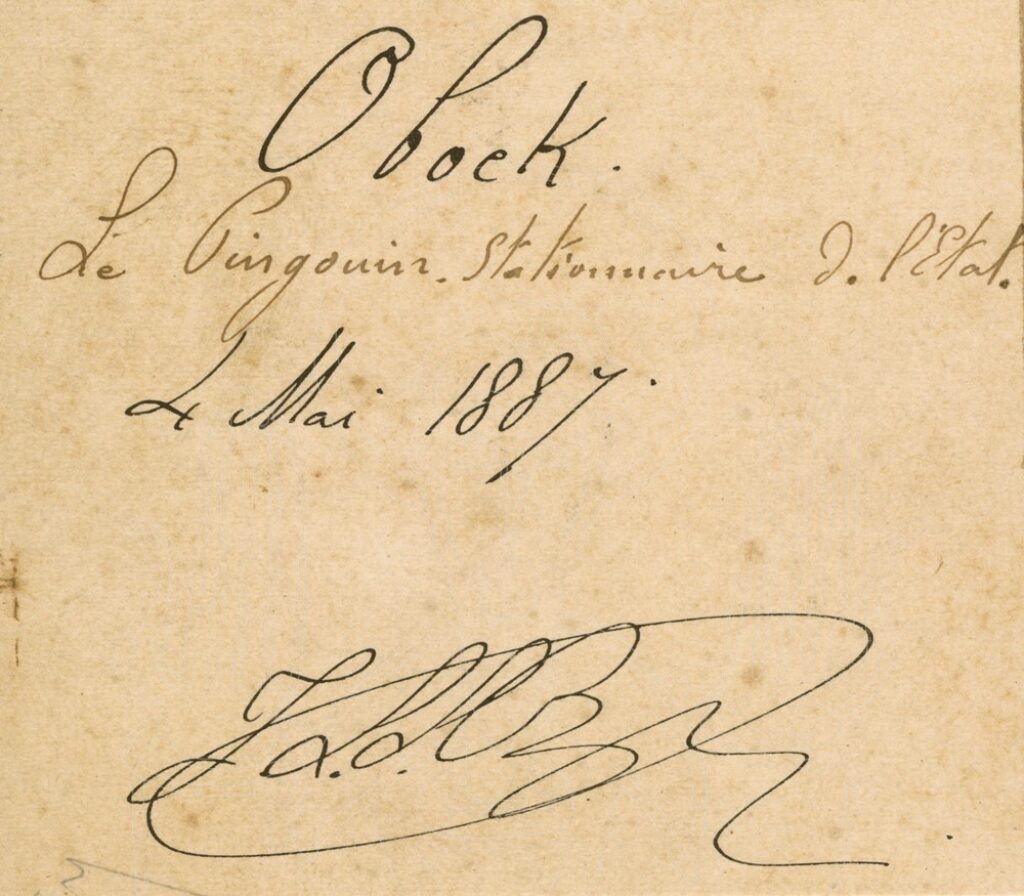 Obock.
Le Pingouin. Stationnaire d. l'Etat.
4 Mai 1887.